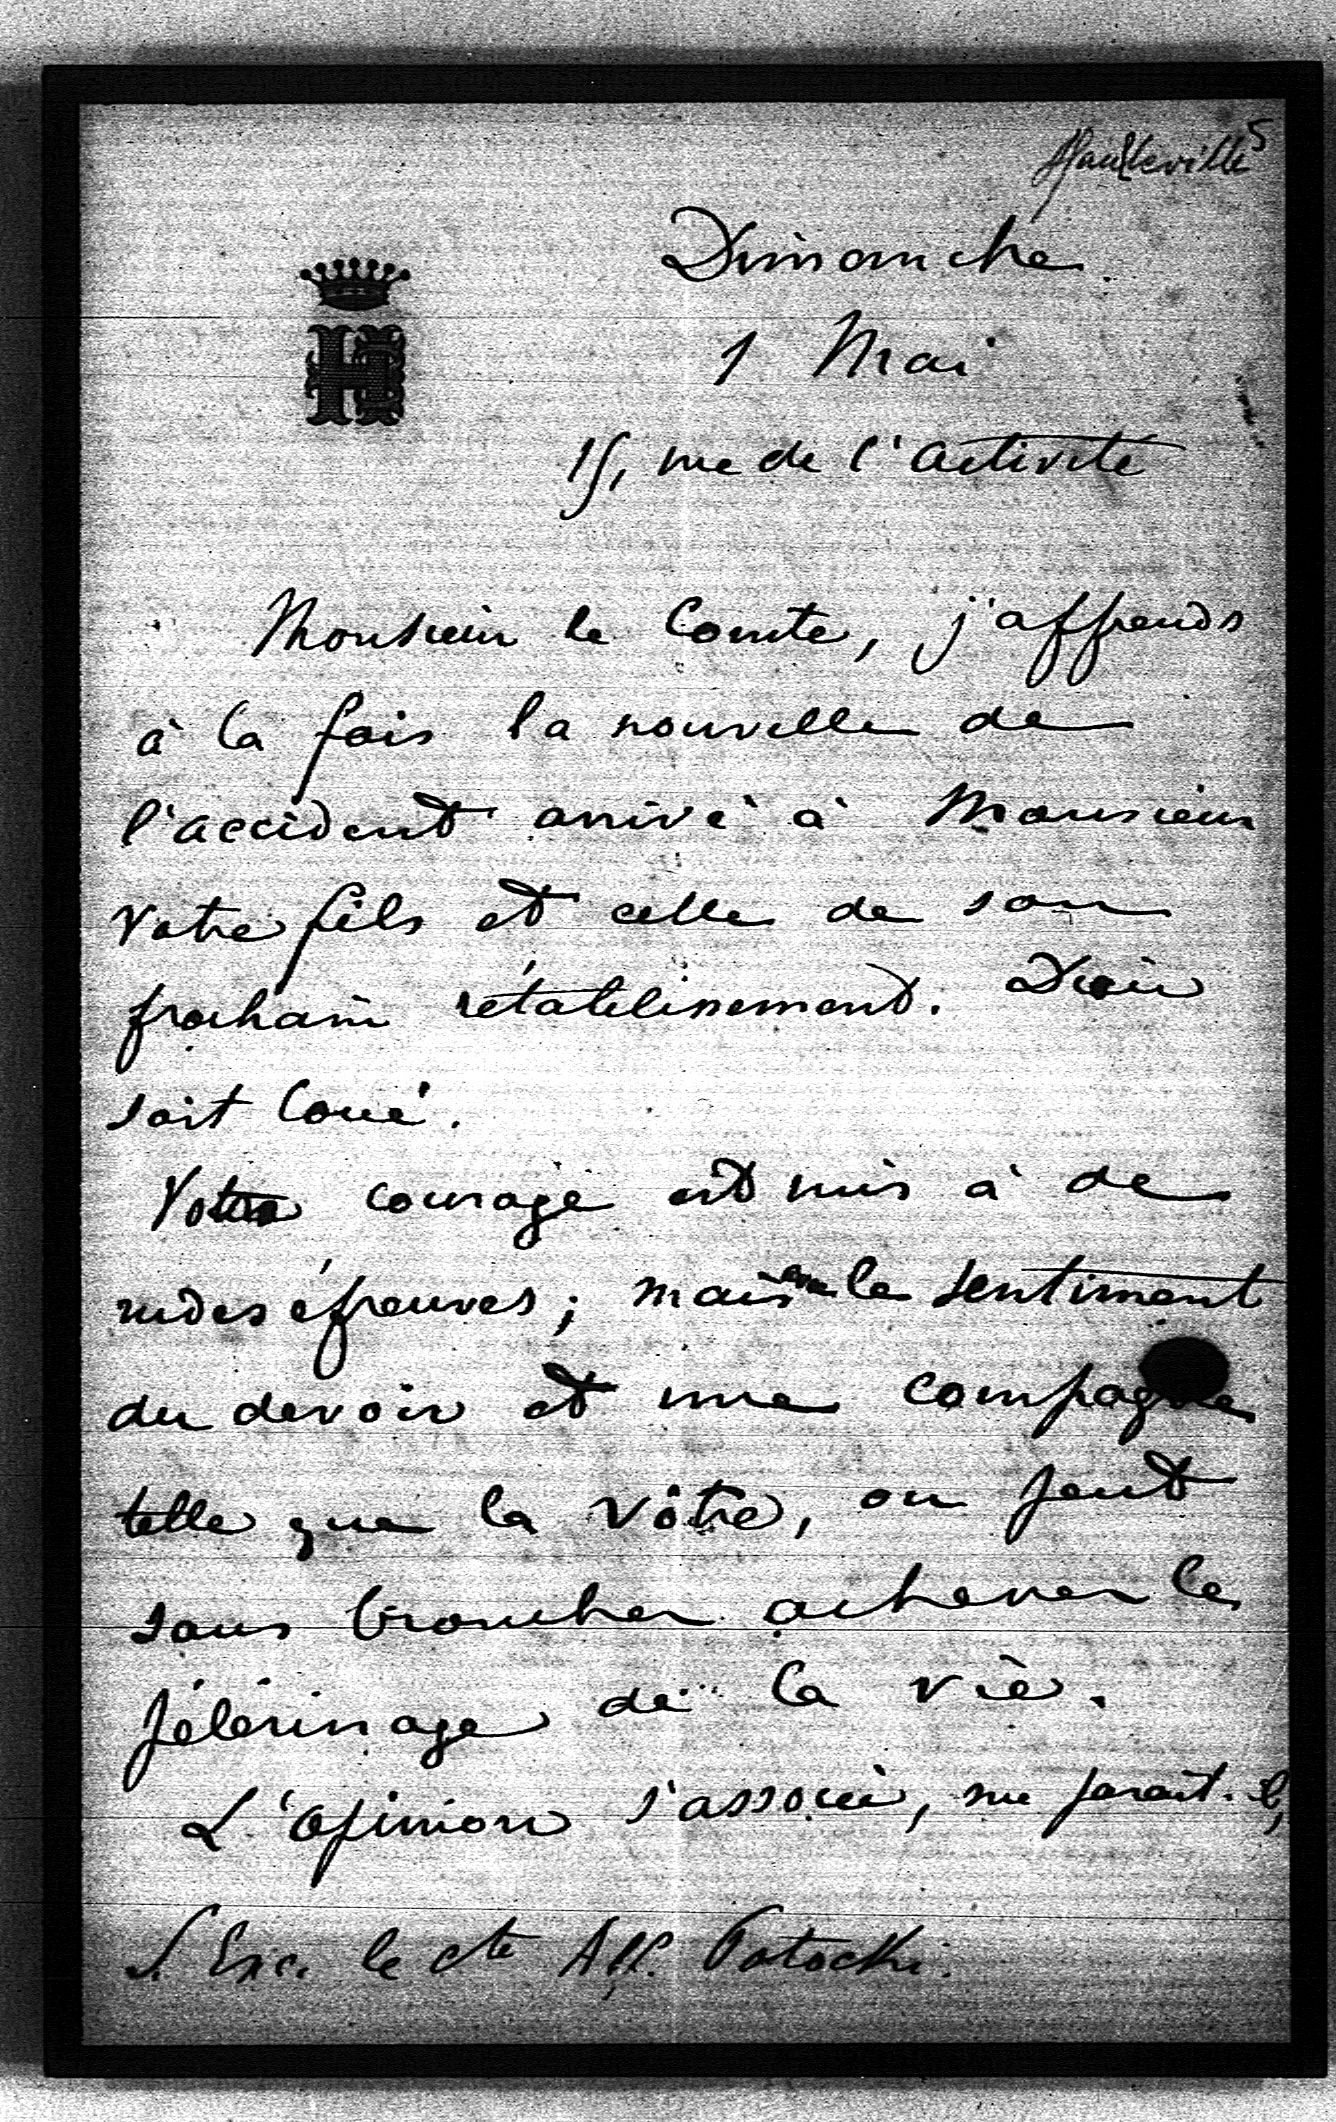 Hauteville 5
Dimanche
1 Mai
H
15, rue de l'activité
Monsieur le Comte, j'apprends
à la fois la nouvelle de
l'accident arrivé à Monsieur
votre fils et celle de son
prochain rétablissement. Dieu
soit loué.
Votre courage est mis à de
rudes épreuves; mais avec le sentiment
du devoir et une compagne
telle que la vôtre, on peut
sans broncher achever le
pélérinage de la vie.
L'opinion s'associe, me parait-il,
S. Exc. le cte Alf. Potocki.